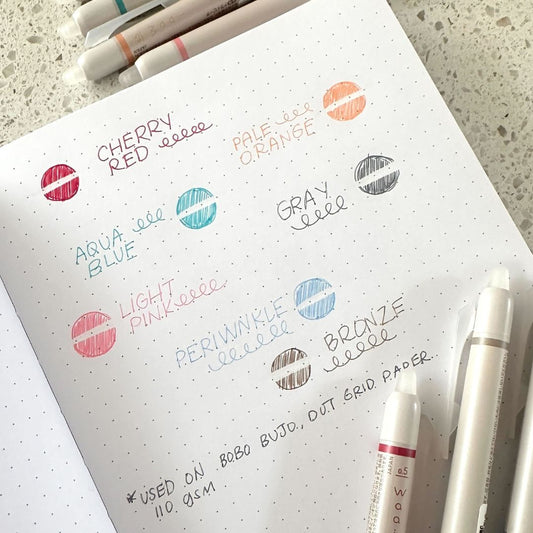 CHERRY
RED
PALE
ORANGE
AQUA
BLUE
GRAY
LIGHT
PINK
PERIWNKLE
BRONZE
*USED ON BOBO BUJO., DOT GRID PAPER.
110 gsm
0.5